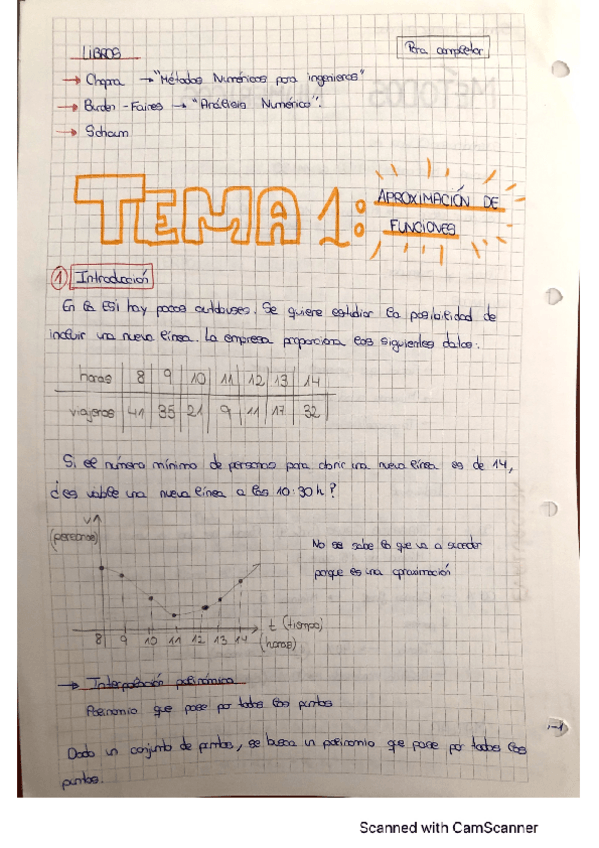 LIBROS
Para completar
→ Chapra → "Métodos Numéricos para ingenieros"
→ Burden - Faires → "Análisis Numérico".
→ Schaum
TEMA 1:
APROXIMACIÓN DE
FUNCIONES
① Introducción
En la ESI hay pocos autobuses. Se quiere estudiar la posibilidad de
incluir una nueva línea. La empresa proporciona los siguientes datos:
horas | 8 | 9 | 10 | 11 | 12 | 13 | 14
viajeros | 41 | 35 | 21 | 9 | 11 | 17 | 32
Si el número mínimo de personas para abrir una nueva línea es de 14,
¿es viable una nueva línea a las 10:30 h?
V
(personas)
No se sabe lo que va a suceder
porque es una aproximación
t (tiempo)
8 9 10 11 12 13 14 (horas)
→ Interpolación polinómica
Polinomio que pase por todos los puntos
1-1
Dado un conjunto de puntos, se busca un polinomio que pase por todos los
puntos.
Scanned with CamScanner